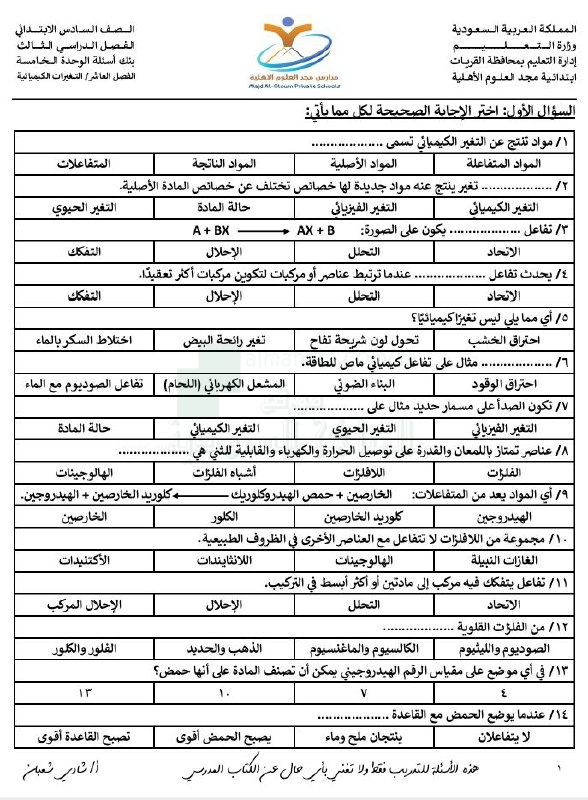 المملكة العربية السعودية
وزارة التعليم
إدارة التعليم بمحافظة القريات
ابتدائية مجد العلوم الأهلية
مدارس مجد العلوم الأهلية
Majd Al-Oloum Private Schools
الصف السادس الابتدائي
الفصل الدراسي الثالث
بنك أسئلة الوحدة الخامسة
الفصل العاشر/ التغيرات الكيميائية
السؤال الأول: اختر الإجابة الصحيحة لكل مما يأتي:
١/ مواد تنتج عن التغير الكيميائي تسمى ....................
المواد المتفاعلة المواد الأصلية المواد الناتجة المتفاعلات
٢/ .................... تغير ينتج عنه مواد جديدة لها خصائص تختلف عن خصائص المادة الأصلية.
التغير الكيميائي التغير الفيزيائي حالة المادة التغير الحيوي
٣/ تفاعل .................... يكون على الصورة: A + BX ⟶ AX + B
الاتحاد التحلل الإحلال التفكك
٤/ يحدث تفاعل .................... عندما ترتبط عناصر أو مركبات لتكوين مركبات أكثر تعقيدًا.
الاتحاد التحلل الإحلال التفكك
٥/ أي مما يلي ليس تغيرًا كيميائيًا؟
احتراق الخشب تحول لون شريحة تفاح تغير رائحة البيض اختلاط السكر بالماء
٦/ .................... مثال على تفاعل كيميائي ماص للطاقة.
احتراق الوقود البناء الضوئي المشعل الكهربائي (اللحام) تفاعل الصوديوم مع الماء
٧/ تكون الصدأ على مسمار حديد مثال على ....................
التغير الفيزيائي التغير الحيوي التغير الكيميائي حالة المادة
٨/ عناصر تمتاز باللمعان والقدرة على توصيل الحرارة والكهرباء والقابلية للثني هي ....................
الفلزات اللافلزات أشباه الفلزات الهالوجينات
٩/ أي المواد يعد من المتفاعلات: الخارصين + حمض الهيدروكلوريك ⟵ كلوريد الخارصين + الهيدروجين.
الهيدروجين كلوريد الخارصين الكلور الخارصين
١٠/ مجموعة من اللافلزات لا تتفاعل مع العناصر الأخرى في الظروف الطبيعية.
الغازات النبيلة الهالوجينات اللانثانيدات الأكتنيدات
١١/ تفاعل يتفكك فيه مركب إلى مادتين أو أكثر أبسط في التركيب.
الاتحاد التحلل الإحلال الإحلال المركب
١٢/ من الفلزات القلوية ....................
الصوديوم والليثيوم الكالسيوم والماغنسيوم الذهب والحديد الفلور والكلور
١٣/ في أي موضع على مقياس الرقم الهيدروجيني يمكن أن تصنف المادة على أنها حمض؟
٤ ٧ ١٠ ١٣
١٤/ عندما يوضع الحمض مع القاعدة ....................
لا يتفاعلان ينتجان ملح وماء يصبح الحمض أقوى تصبح القاعدة أقوى
١ هذه الأسئلة للتدريب فقط ولا تغني بأي حال عن الكتاب المدرسي أ/ شادي شعبان